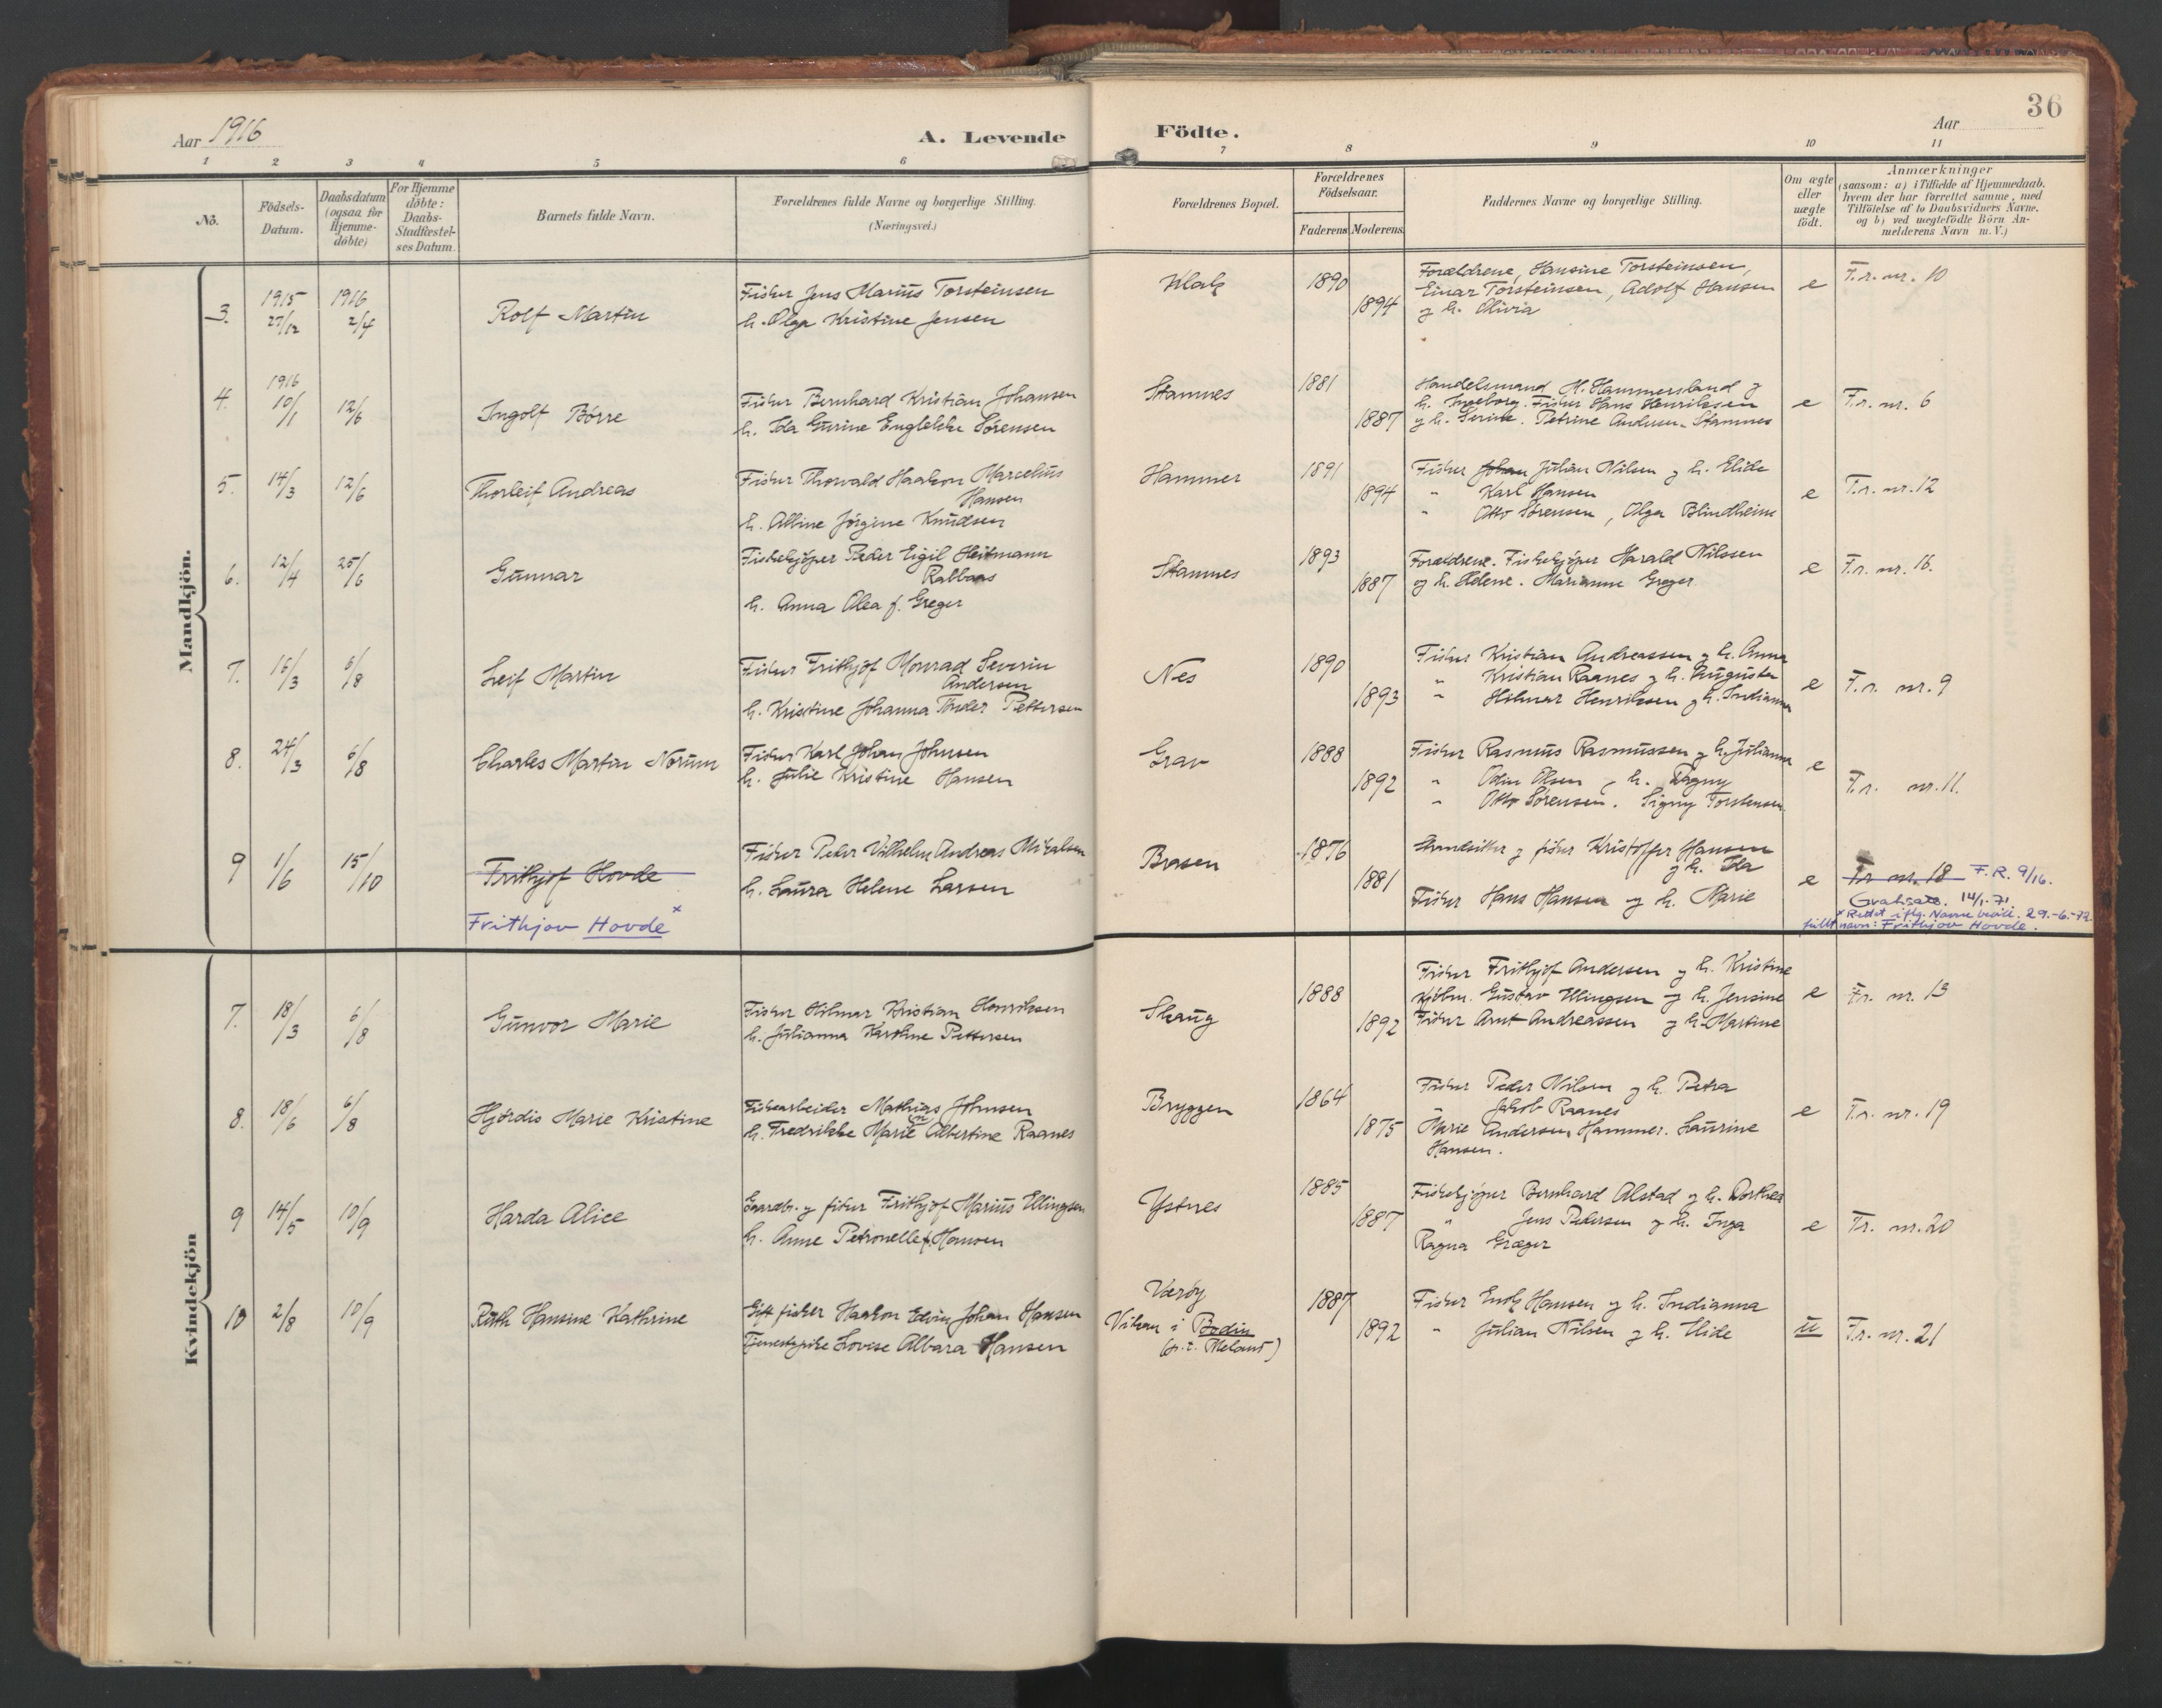 Aar 1916
A. Levende Födte.
Aar
36
1 2 3 4 5 6 7 8 9 10 11
No.
Födsels-
Datum.
Daabsdatum
(ogsaa for
Hjemme-
döbte)
For Hjemme
döbte:
Daabs-
Stadfæstel-
ses Datum.
Barnets fulde Navn.
Forældrenes fulde Navne og borgerlige Stilling.
(Næringsvei.)
Forældrenes Bopæl.
Forældrenes
Födselsaar.
Faderens Moderens
Faddernes Navne og borgerlige Stilling.
Om ægte
eller
uægte
födt.
Anmærkninger
(saasom: a) i Tilfælde af Hjemmedaab,
hvem der har forrettet samme, med
Tilföielse af to Daabsvidners Navne,
og b) ved uægtefödte Börn An-
melderens Navn m. V.)
Mandkjön.
3. 1915 27/12 1916 2/4
Rolf Martin
Fisker Jens Marius Torsteinsen
h. Olga Kristine Jensen
Klak
1890
1894
Forældrene, Hansine Torsteinsen,
Einar Torsteinsen, Adolf Hansen
og h. Olivia
e
F.r. nr. 10
4. 1916 10/1 12/6
Ingolf Børre
Fisker Bernhard Kristian Johansen
h. Ida Gurine Englekke Sørensen
Stamnes
1881
1887
Handelsmand M. Hammersland og
h. Ingeborg. Fisker Hans Henriksen
og h. Serine. Petrine Andersen. Stamnes
e
F.r. nr. 6
5. 14/3 12/6
Thorleif Andreas
Fisker Thorvald Haakon Marcelius
Hansen
h. Alline Jørgine Knudsen
Hammer
1891
1894
Fisker Johan Julian Nilsen og h. Elide
" Karl Hansen
" Otto Sørensen, Olga Blindheim
e
F.r. nr. 12
6. 12/4 25/6
Gunnar
Fiskekjøper Peder Eigil Heitmann
Rabbaas
h. Anna Olea f. Greger
Stamnes
1893
1887
Forældrene. Fiskekjøper Harald Nilssen
og h. Helene. Marianne Greger.
e
F.r. nr. 16.
7. 16/3 6/8
Leif Martin
Fisker Frithjof Monrad Severin
Andersen
h. Kristine Johanna Tønder Pettersen
Nes
1890
1893
Fisker Kristian Andreassen og h. Anna
" Kristian Raanes og h. Augusta
" Hilmar Henriksen og h. Indianna
e
F.r. nr. 9
8. 24/3 6/8
Charles Martin Norum
Fisker Karl Johan Johnsen
h. Julie Kristine Hansen
Grav
1888
1892
Fisker Rasmus Rasmussen og h. Julianna
" Odin Olsen, h. Dagny
" Otto Sørensen. Signy Torstensen.
e
F.r. nr. 11.
9 1/6 15/10
Frithjof Hovde
Frithjov Hovde x
Fisker Peder Vilhelm Andreas Mikalsen
h. Laura Helene Larsen
Brasen
1876
1881
Strandsitter og fisker Kristoffer Hansen
og h. Ida
Fisker Hans Hansen og h. Marie
e
Fr. nr. 18 F.R. 9/16.
14/1-71
x Rettet iflg. Navne bevill. 29.-6.-72.
fullt navn: Frithjov Hovde.
Kvindekjön
7. 18/3 6/8
Gunvor Marie
Fisker Hilmar Kristian Henriksen
h. Julianna Karoline Pettersen
Skaug
1888
1892
Fisker Frithjof Andersen og h. Kristine
Kjøbm. Gustav Ellingsen og h. Jensine
Fisker Arnt Andreassen og h. Martine
e
Fr. nr. 13
8. 18/6 6/8
Hjørdis Marie Kristine
Fiskearbeider Mathias Johnsen
h. Fredrikke Marie Albertine Raanes
Bryggen
1864
1875
Fisker Peder Nilsen og h. Petra
Jakob Raanes
Marie Andersen, Hammer. Laurine
Hansen.
e
F.r. nr. 19
9 14/5 10/9
Harda Alice
Gaardb. og fisker Frithjof Marius Ellingsen
h. Anne Petronelle f. Hansen
Ystnes
1885
1887
Fiskekjøper Bernhard Alstad og h. Dorthea
" Jens Pedersen og h. Inga
Ragna Græger
e
Fr. nr. 20
10 2/8 10/9
Ruth Hansine Kathrine
Gift fisker Haakon Edvin Johan Hansen
Tjenestepike Lovise Albara Hansen
Værøy
Vikan i Bodin
(p.t. Meland)
1887
1892
Fisker Enok Hansen og h. Indianna
" Julian Nilsen og h. Elide
u
Fr. nr. 21